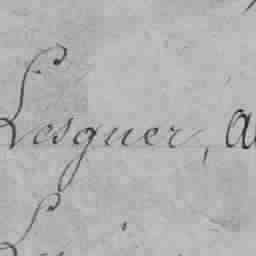 Lesguer, a